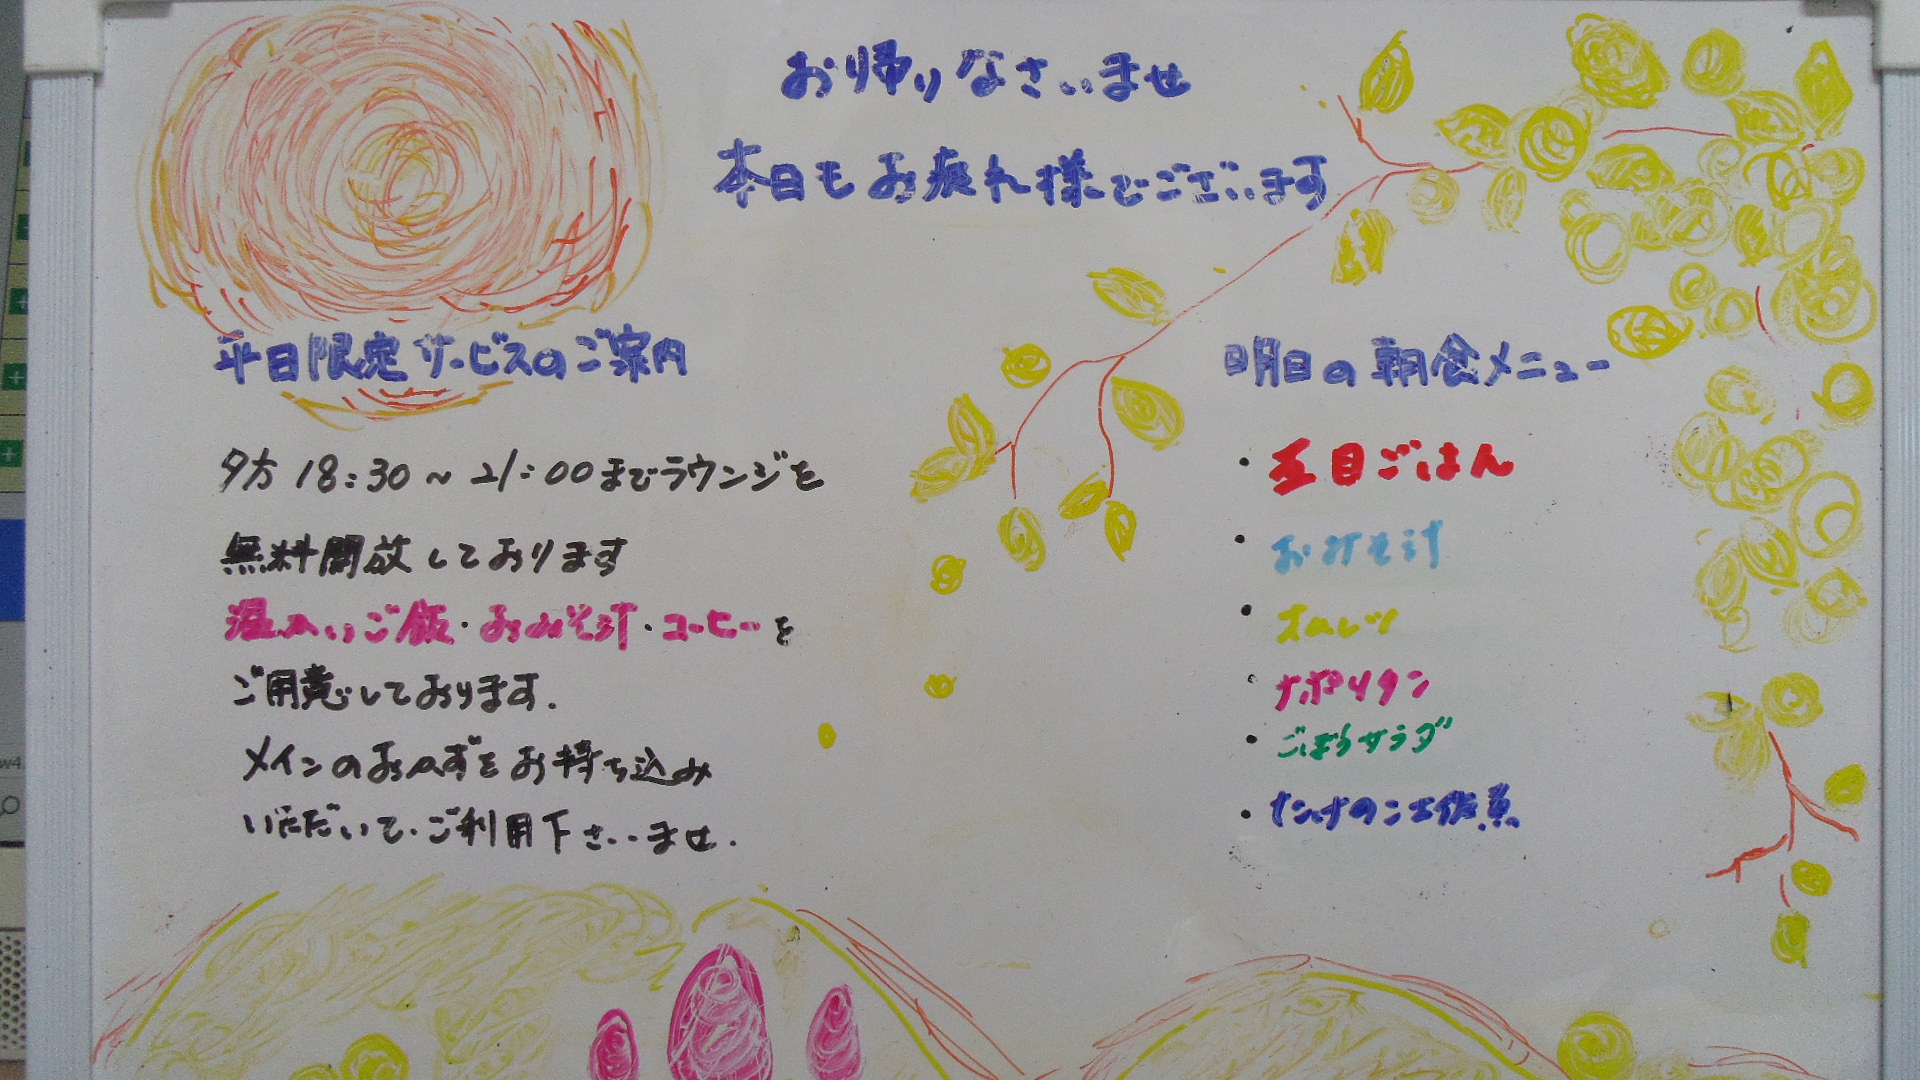 お帰りなさいませ
本日もお疲れ様でございます
平日限定サービスのご案内
夕方 18:30～21:00までラウンジを
無料開放しております
温かいご飯・おみそ汁・コーヒーを
ご用意しております.
メインのおかずをお持ち込み
いただいて、ご利用下さいませ.
明日の朝食メニュー
・五目ごはん
・おみそ汁
・オムレツ
・ナポリタン
・ごぼうサラダ